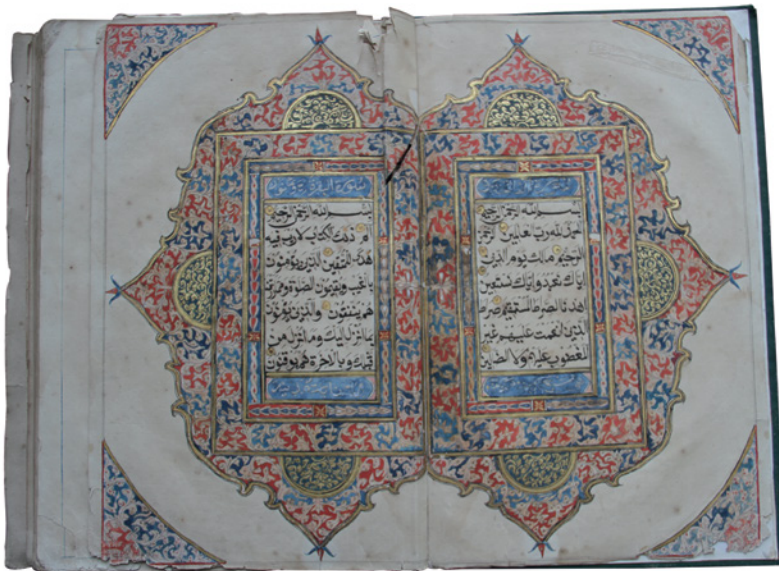 بسم الله الرحمن الرحيم
الحمد لله رب العلمين الرحمن
الرحيم ملك يوم الدين
اياك نعبد واياك نستعين
اهدنا الصرط المستقيم صرط
الذين انعمت عليهم غير
المغضوب عليهم ولا الضالين
سورة البقرة
بسم الله الرحمن الرحيم
الم ذلك الكتب لا ريب فيه
هدى للمتقين الذين يؤمنون
بالغيب ويقيمون الصلوة ومما
هم ينفقون والذين يؤمنون
بما انزل اليك وما انزل من
قبلك وبالاخرة هم يوقنون